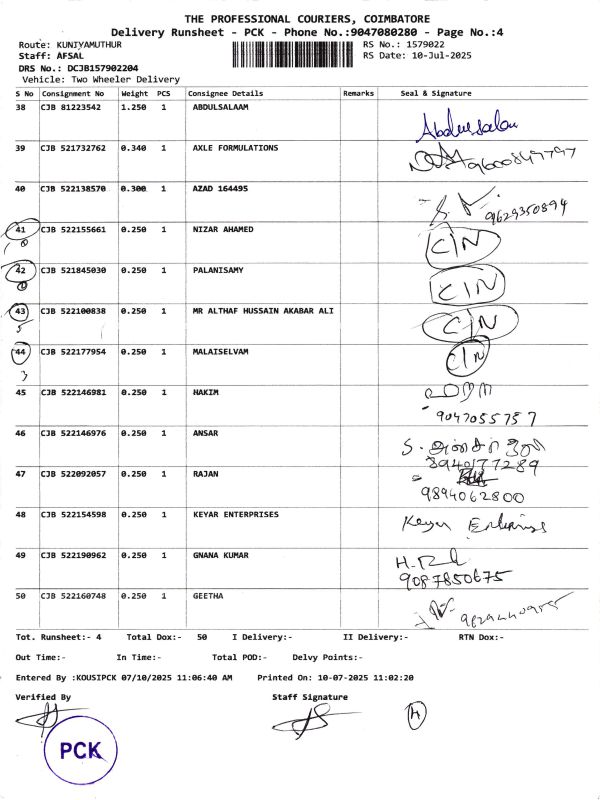 THE PROFESSIONAL COURIERS, COIMBATORE
Delivery Runsheet - PCK - Phone No.:9047080280 - Page No.:4
Route: KUNIYAMUTHUR RS No.: 1579022
Staff: AFSAL RS Date: 10-Jul-2025
DRS No.: DCJB157902204
Vehicle: Two Wheeler Delivery
S No Consignment No Weight PCS Consignee Details Remarks Seal & Signature
38 CJB 81223542 1.250 1 ABDULSALAAM Abdulsalam
39 CJB 521732762 0.340 1 AXLE FORMULATIONS
40 CJB 522138570 0.300 1 AZAD 164495 9629350894
41 CJB 522155661 0.250 1 NIZAR AHAMED C/N
42 CJB 521845030 0.250 1 PALANISAMY C/N
43 CJB 522100838 0.250 1 MR ALTHAF HUSSAIN AKABAR ALI C/N
5
44 CJB 522177954 0.250 1 MALAISELVAM C/N
3
45 CJB 522146981 0.250 1 HAKIM
9047055757
46 CJB 522146976 0.250 1 ANSAR
8940177289
47 CJB 522092057 0.250 1 RAJAN
9894062800
48 CJB 522154598 0.250 1 KEYAR ENTERPRISES Keyar Enterprises
49 CJB 522190962 0.250 1 GNANA KUMAR
9087850675
50 CJB 522160748 0.250 1 GEETHA
Tot. Runsheet:- 4 Total Dox:- 50 I Delivery:- II Delivery:- RTN Dox:-
Out Time:- In Time:- Total POD:- Delvy Points:-
Entered By :KOUSIPCK 07/10/2025 11:06:40 AM Printed On: 10-07-2025 11:02:20
Verified By Staff Signature
PCK